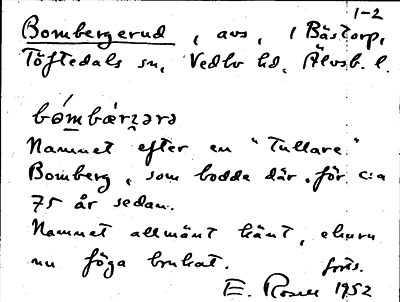 1-2
Bombergerud, avs, i Båstorp,
Töftedals sn, Vedbo hd, Älvsb. l.
Namnet efter en "Tullare"
Bomberg, som bodde där för c:a
75 år sedan.
Namnet allmänt känt, ehuru
nu föga brukat. forts.
E. 1952